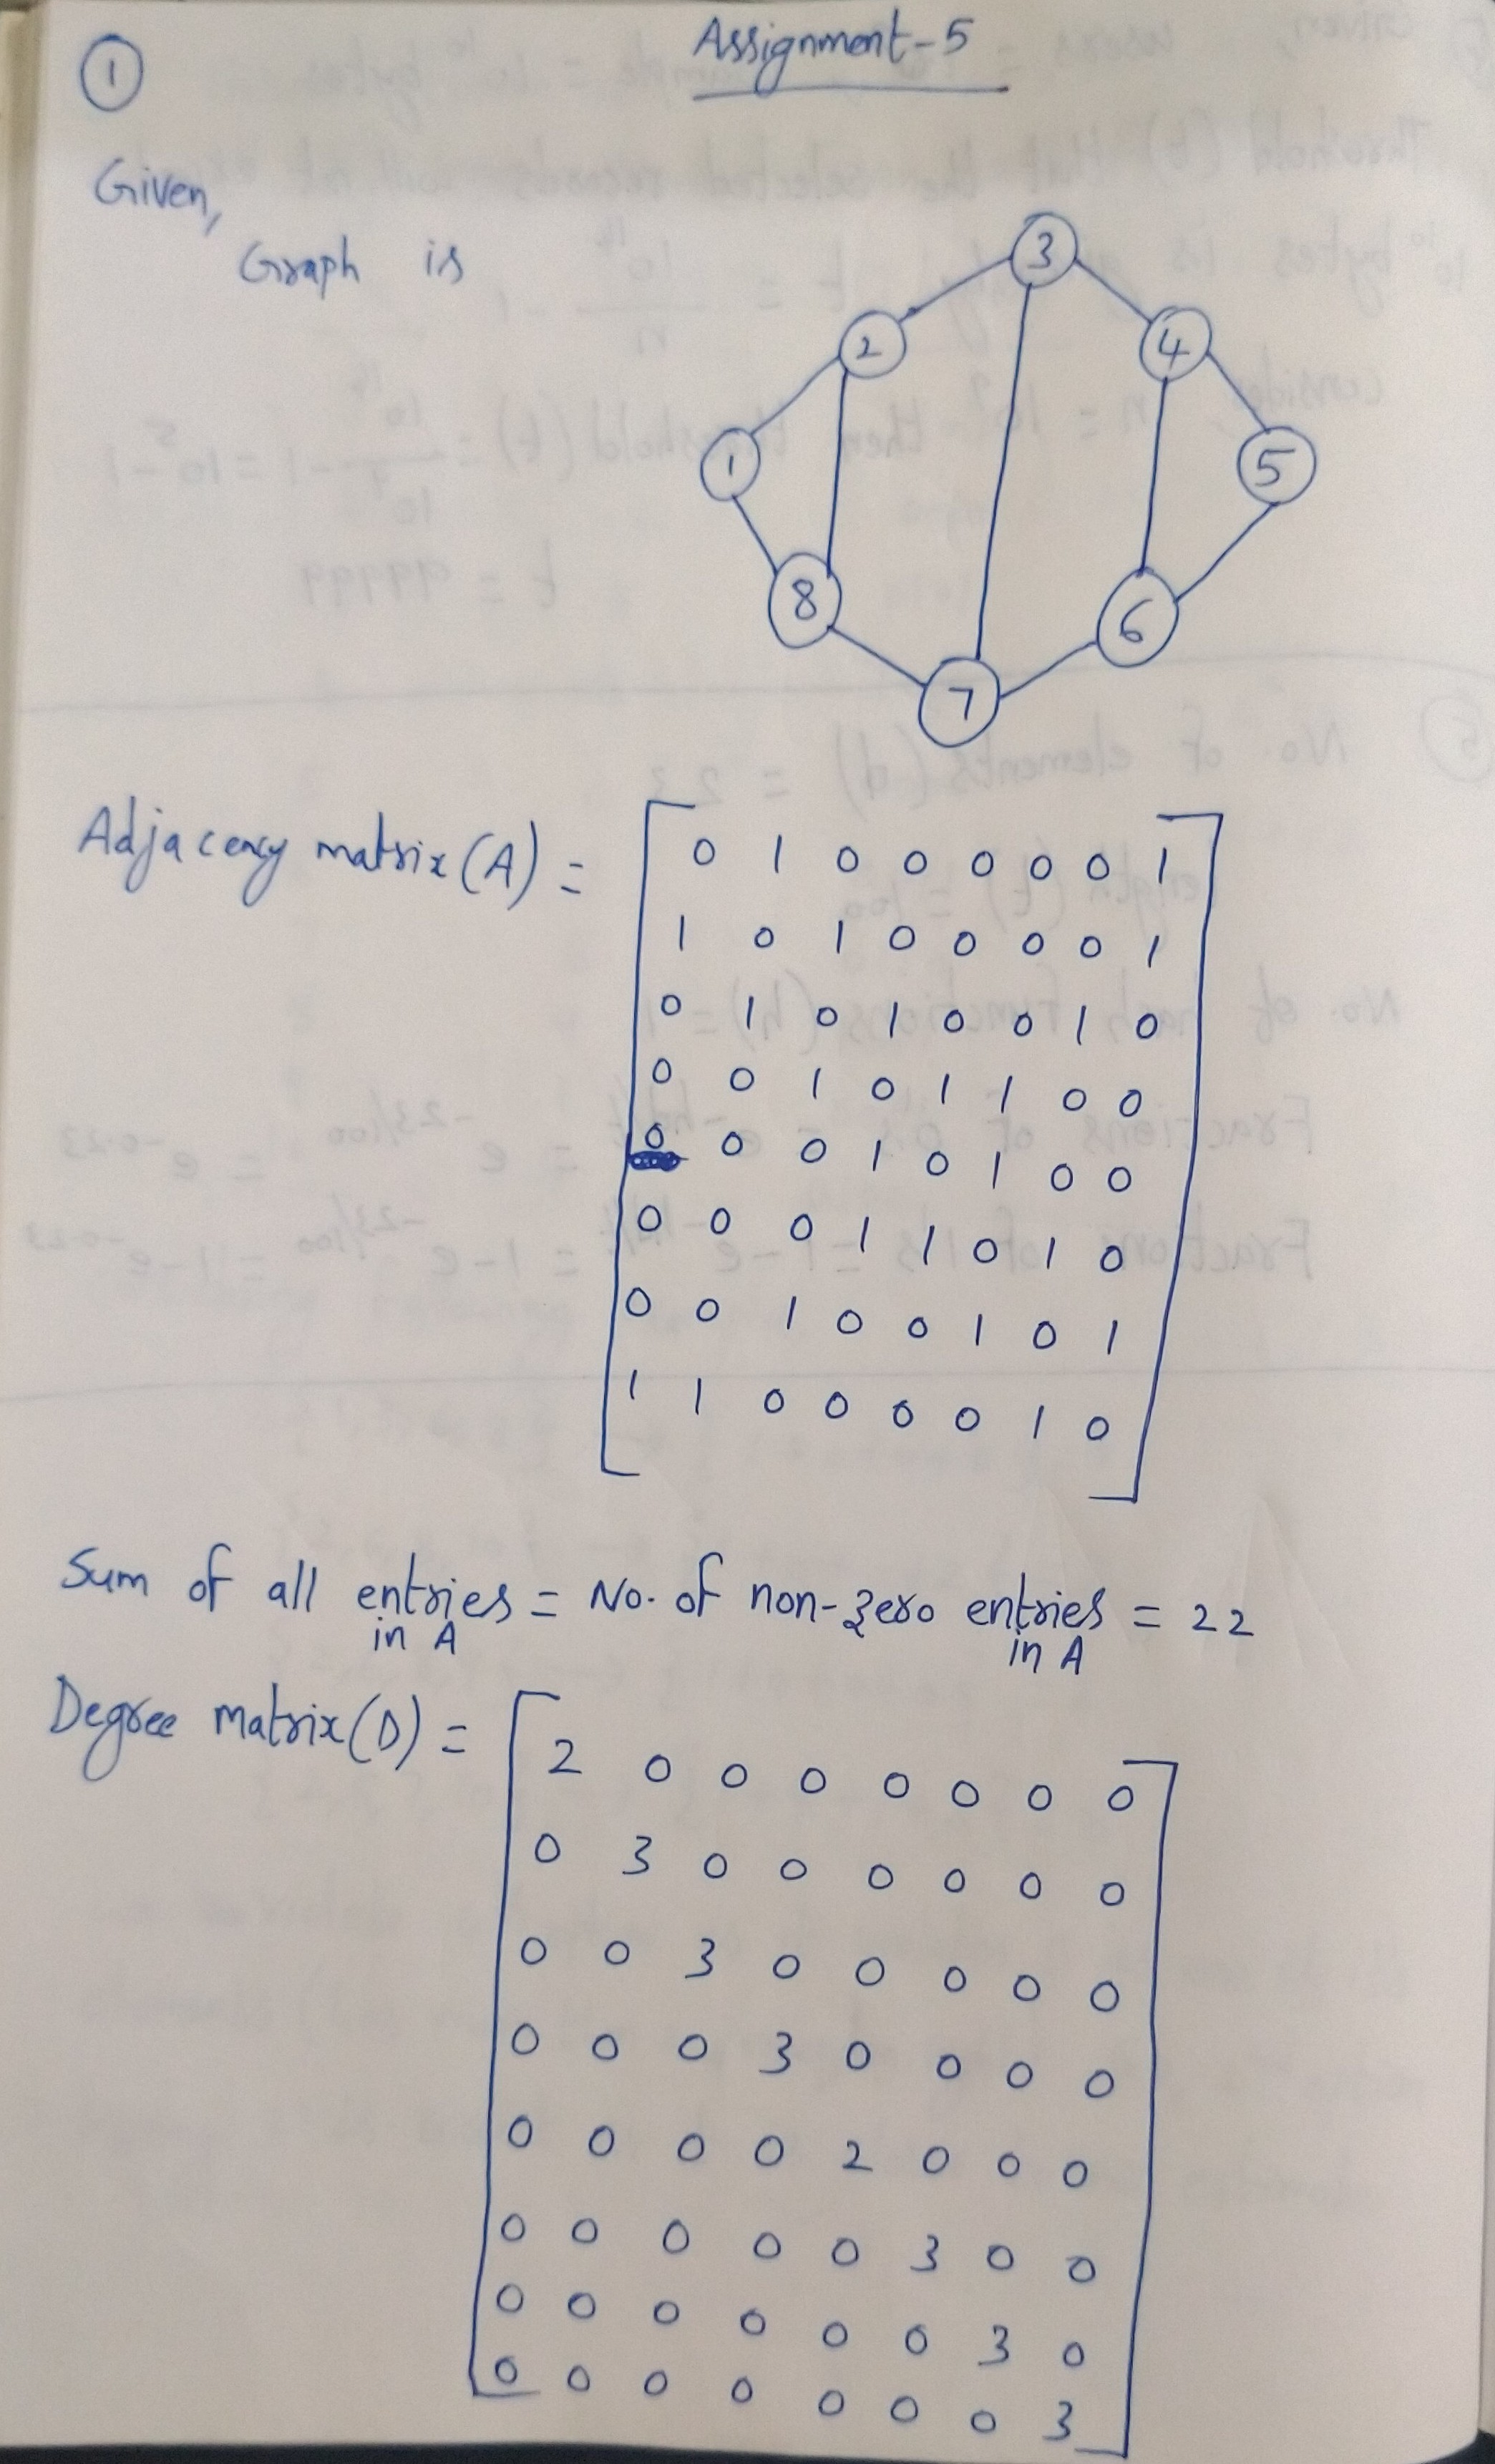 Assignment-5
1
Given,
Graph is
3
2
4
1
5
8
6
7
Adjacency matrix(A) =
0 1 0 0 0 0 0 1
1 0 1 0 0 0 0 1
0 1 0 1 0 0 1 0
0 0 1 0 1 1 0 0
0 0 0 1 0 1 0 0
0 0 0 1 1 0 1 0
0 0 1 0 0 1 0 1
1 1 0 0 0 0 1 0
Sum of all entries = No. of non-zero entries = 22
in A in A
Degree matrix(D) =
2 0 0 0 0 0 0 0
0 3 0 0 0 0 0 0
0 0 3 0 0 0 0 0
0 0 0 3 0 0 0 0
0 0 0 0 2 0 0 0
0 0 0 0 0 3 0 0
0 0 0 0 0 0 3 0
0 0 0 0 0 0 0 3